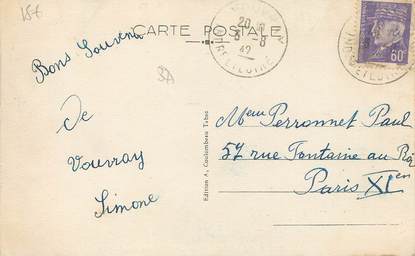 15t
CARTE POSTALE
20
8 - 8
42
ET LOIRE
60
Bons Souvenirs
3A
De
Vouvray
Simone
Edition A. Coulombeau Tabac
Mem Perronnet Paul
57 rue Fontaine au Roi
Paris XIem